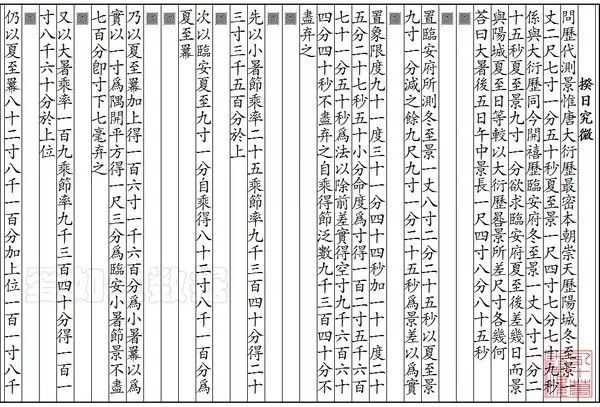 揆日究微
問歷代測景惟唐大衍歷最密本朝崇天歷陽城冬至景一
丈二尺七寸一分五十秒夏至景一尺四寸七分七十九秒
係與大衍歷同今開禧歷臨安府冬至景一丈八寸二分二
十五秒夏至景九寸一分欲求臨安府夏至後差幾日而景
與陽城夏至日等較以大衍歷晷景所差尺寸各幾何
荅曰大暑後五日午中景長一尺四寸八分八十五秒
置臨安府所測冬至景一丈八寸二分二十五秒以夏至景
九寸一分減之餘九尺九寸一分二十五秒爲景差以爲實
置象限度九十一度三十一分四十四秒加一十一度二十
五分二十七秒五十小分命度爲寸得一百二寸五千六百
七十一分五十秒爲法以除前差實得空寸九千六百六十
四分四十秒不盡弃之自乘得節泛數九千三百四十分不
盡弃之
先以小暑節乘率二十五乘節率九千三百四十分得二十
三寸三千五百分於上
次以臨安夏至九寸一分自乘得八十二寸八千一百分爲
夏至羃
乃以夏至羃加上得一百六寸一千六百分爲小暑羃以爲
實以一寸爲隅開平方得一尺三分爲臨安小暑節景不盡
七百分卽寸下七毫弃之
又以大暑乘率一百九乘節率九千三百四十分得一百一
寸八千六十分於上位
仍以夏至羃八十二寸八千一百分加上位一百一寸八千